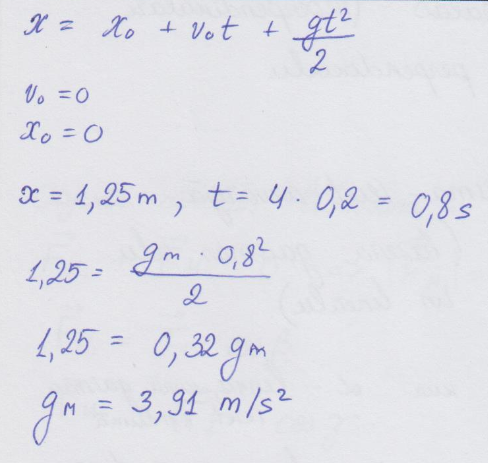 x = x₀ + v₀t + gt²/2
v₀ = 0
x₀ = 0
x = 1,25 m , t = 4 · 0,2 = 0,8 s
1,25 = gₘ 0,8²/2
1,25 = 0,32 gₘ
gₘ = 3,91 m/s²